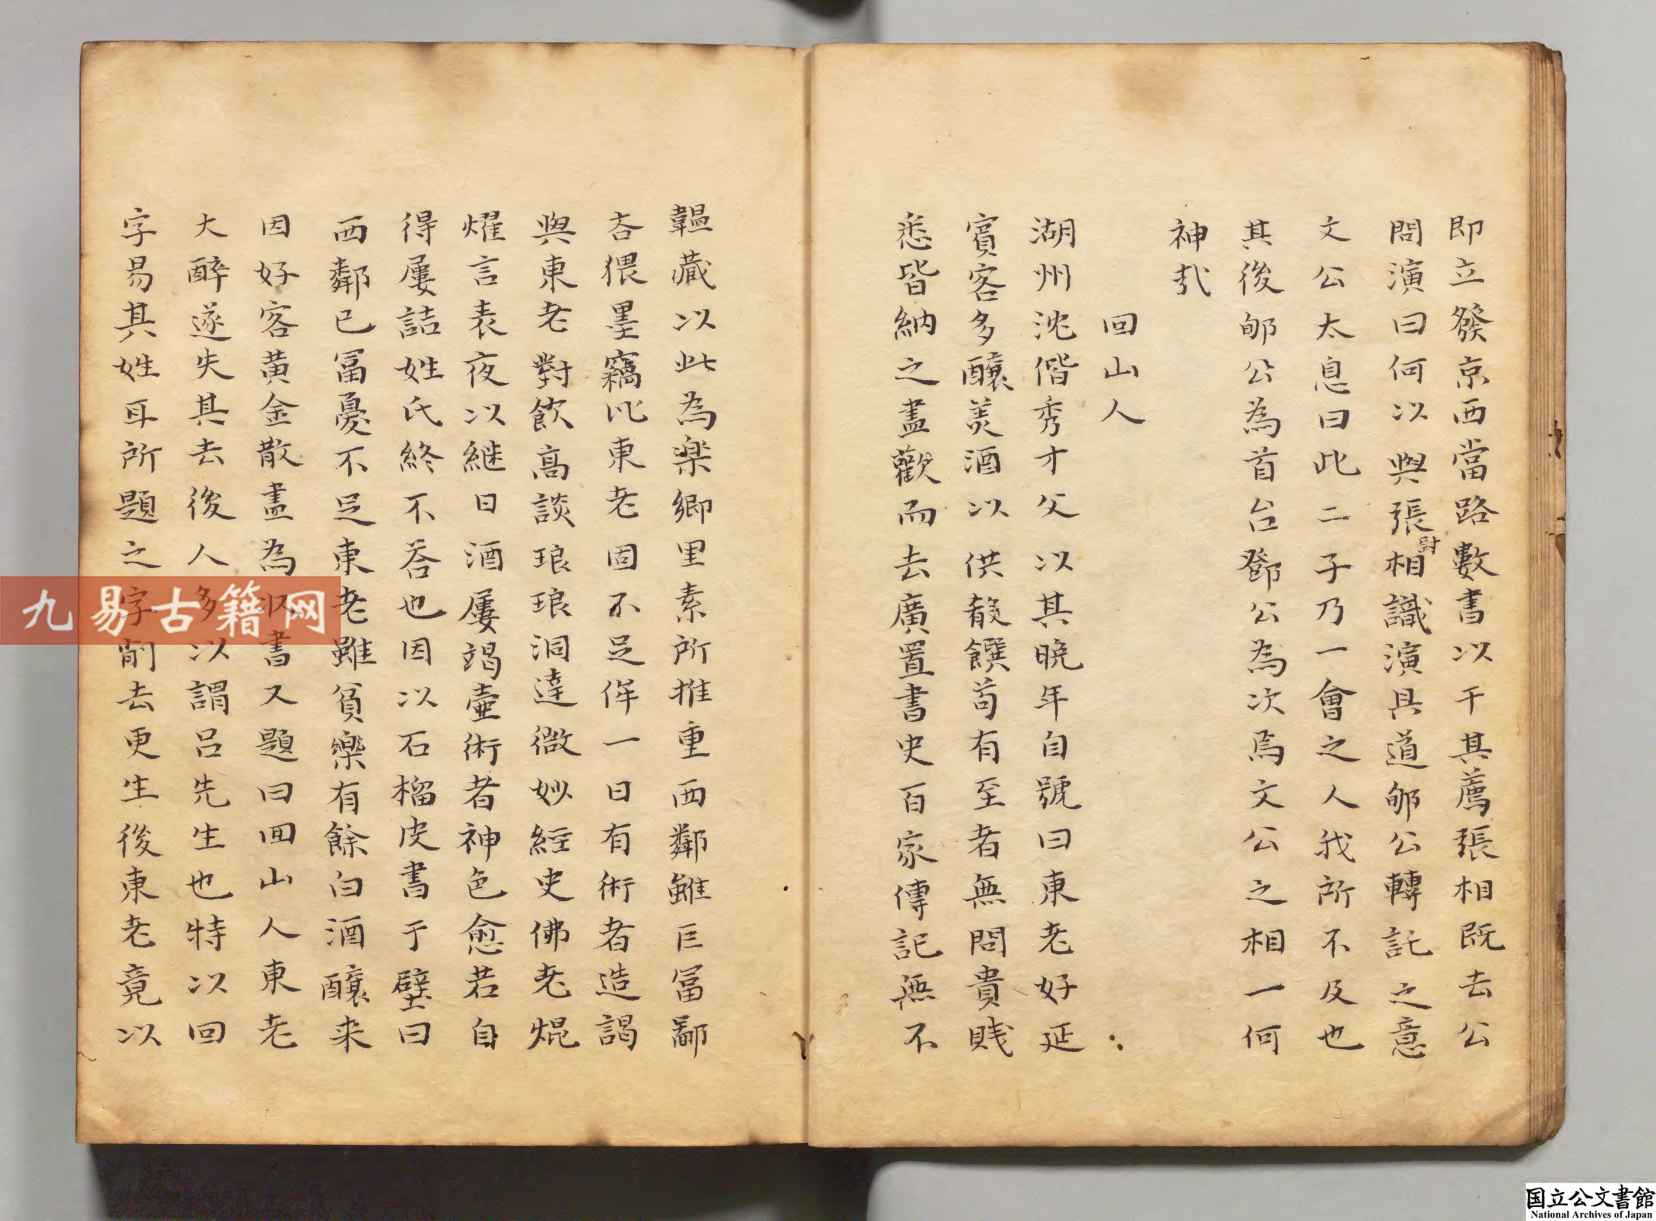 即立發京西當路數書以干其薦張相既去公
問演曰何以與張相尉識演具道郇公轉託之意
文公太息曰此二子乃一會之人我所不及也
其後郇公為首台鄧公為次焉文公之相一何
神哉
回山人
湖州沈偕秀才父以其晚年自號曰東老好延
賓客多釀美酒以供殽饌苟有至者無問貴賤
悉皆納之盡歡而去廣置書史百家傳記無不
韞藏以此為楽鄉里素所推重西鄰雖巨冨鄙
吝猥墨竊比東老固不足侔一日有術者造謁
與東老對飲高談琅琅洞達微妙經史佛老焜
燿言表夜以継日酒屢竭壷術者神色愈若自
得屢詰姓氏終不荅也因以石榴皮書于壁曰
西鄰已冨憂不足東老雖貧樂有餘白酒釀来
因好客黄金散盡為収書又題曰回山人東老
大醉遂失其去後人多以謂呂先生也特以回
字易其姓耳所題之字削去更生後東老竟以
九易古籍网
国立公文書館
National Archives of Japan